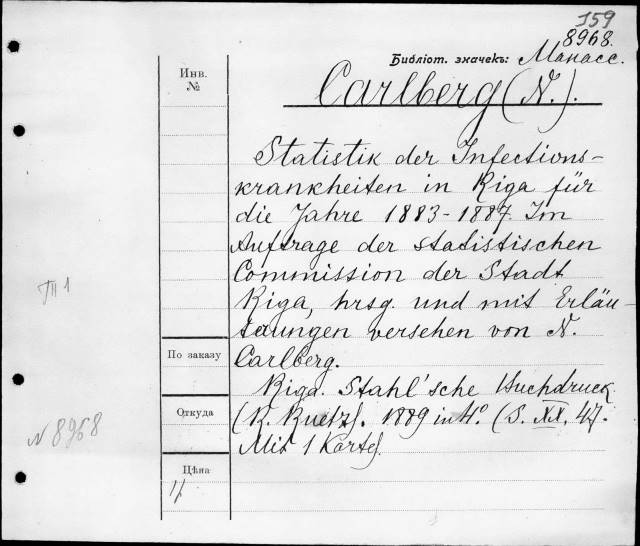 159
8968.
Библіот. значекъ: Манасс.
Инв.
№
Carlberg (N.).
Statistik der Infections-
krankheiten in Riga für
die Jahre 1883-1887. Im
Auftrage der statistischen
Commission der Stadt
Riga, hrsg. und mit Erläu-
terungen versehen von N.
Carlberg.
Riga. Stahl'sche Buchdruck
(R. Ruetz). 1889 in 4°. (S. XX, 47.
Mit 1 Karte).
По заказу
Откуда
N 8968
Цѣна